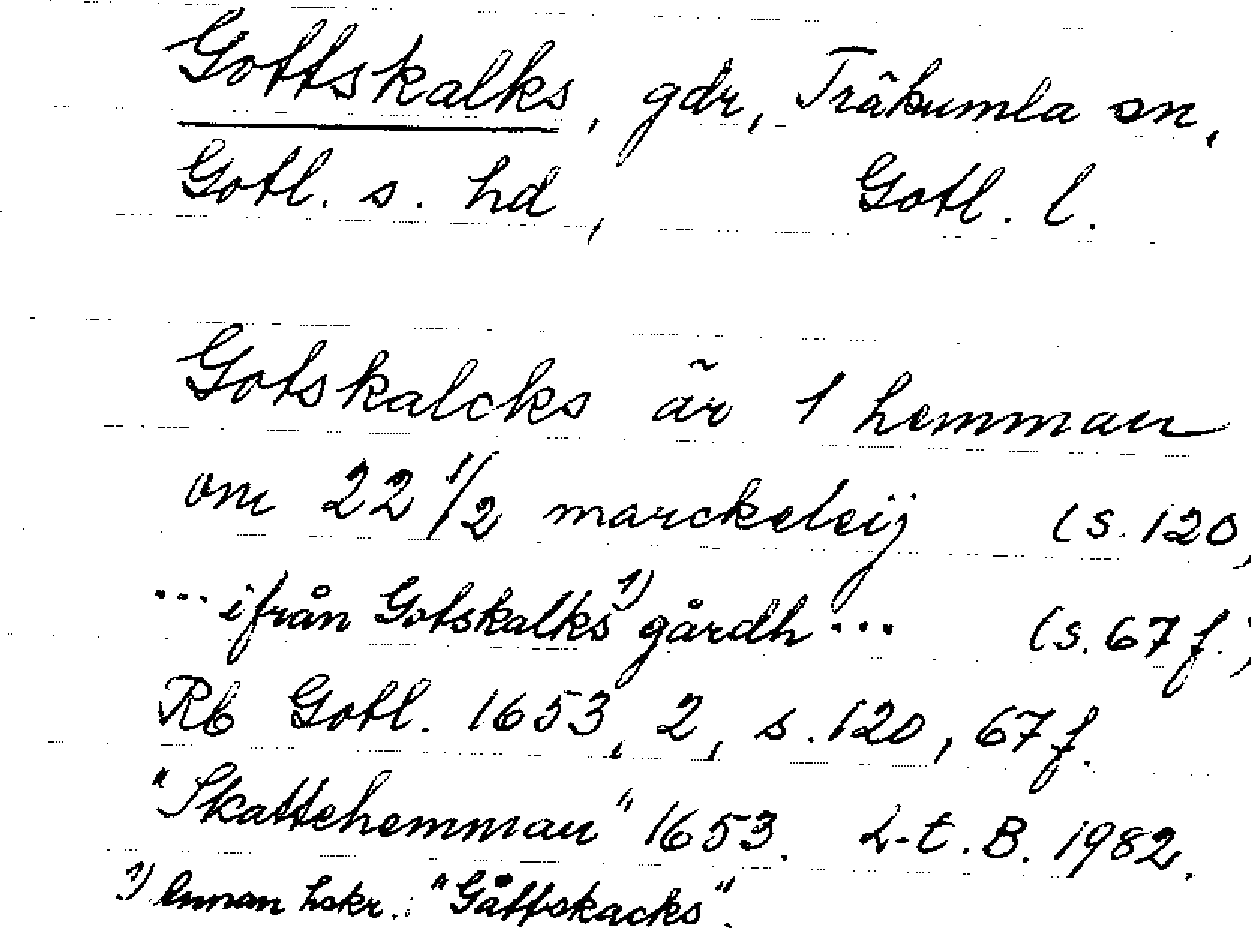 Gottskalks, gdr, Träkumla sn,
Gotl. s. hd, Gotl. l.
Gotskalcks är 1 hemman
om 22 1/2 marckeleij (s. 120,
... ifrån Gotskalks 1) gårdh ... (s. 67 f.)
Rb Gotl. 1653, 2, s. 120, 67 f.
"Skattehemman" 1653. L-t. B. 1982.
1) Annan hskr.: "Gåttskacks".